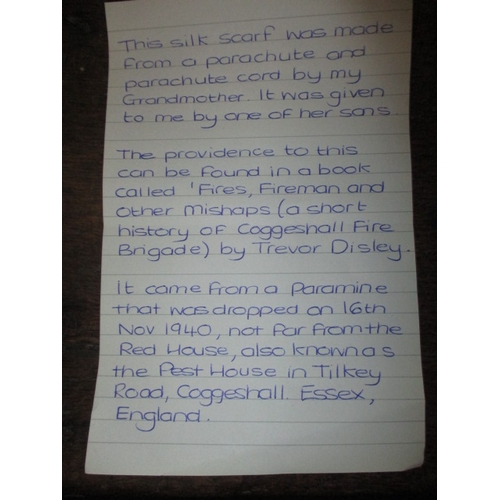 This silk scarf was made
from a parachute and
parachute cord by my
Grandmother. It was given
to me by one of her sons.
The providence to this
can be found in a book
called 'Fires, Fireman and
other mishaps (a short
history of Coggeshall Fire
Brigade) by Trevor Disley.
It came from a Paramine
that was dropped on 16th
Nov 1940, not far from the
Red House, also known as
the Pest House in Tilkey
Road, Coggeshall. Essex,
England.